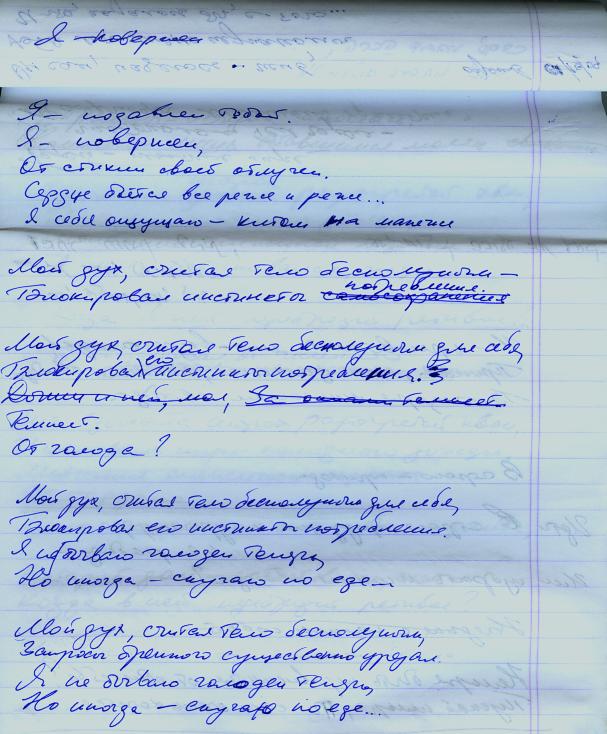 Я – повержен
Я – подавлен
Я – повержен,
От стихии своей отлучен.
Сердце бьётся все реже и реже...
Я себя ощущаю – китом на манеже
Мой дух, считая тело бесполезным –
Блокировал инстинкты самосохранения потребления.
Мой дух, считая тело бесполезным для себя,
Блокировал его инстинкты потребления.
мол, За окнами темнеет
Темнеет.
От голода?
Мой дух, считая тело бесполезным для себя,
Блокировал его инстинкты потребления.
Я не бываю голоден теперь,
Но иногда – скучаю по еде...
Мой дух, считая тело бесполезным,
Запросы бренного существенно урезал.
Я не бываю голоден теперь,
Но иногда – скучаю по еде...